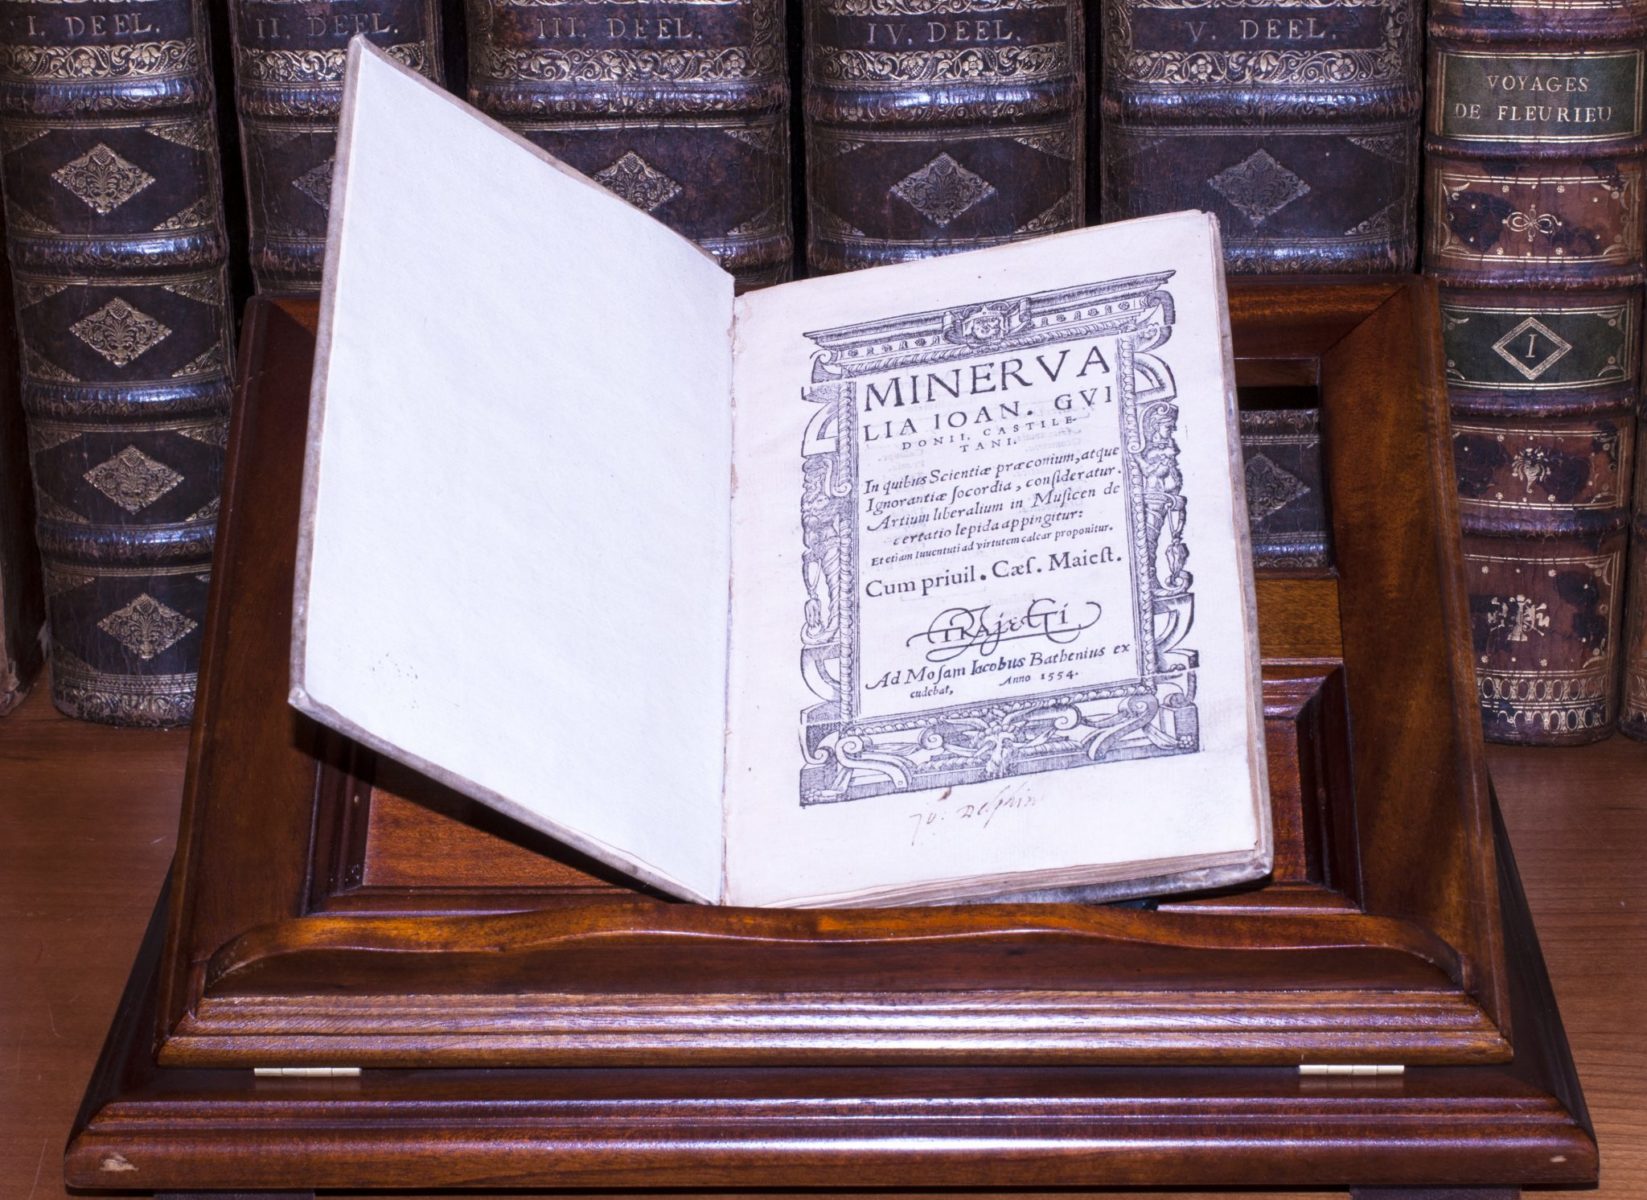 I. DEEL.
II. DEEL.
III. DEEL.
IV. DEEL.
V. DEEL.
VOYAGES
DE FLEURIEU
I
MINERVA
LIA IOAN. GVI
DONII, CASTILE-
TANI.
In quibus Scientiæ præconium, atque
Ignorantiæ ſocordia, conſideratur.
Artium liberalium in Muſicen de
certatio lepida appingitur:
Et etiam iuuentuti ad virtutem calcar proponitur.
Cum priuil. Cæſ. Maieſt.
TRAjECTI,
Ad Moſam Iacobus Bathenius ex
cudebat, Anno 1554.